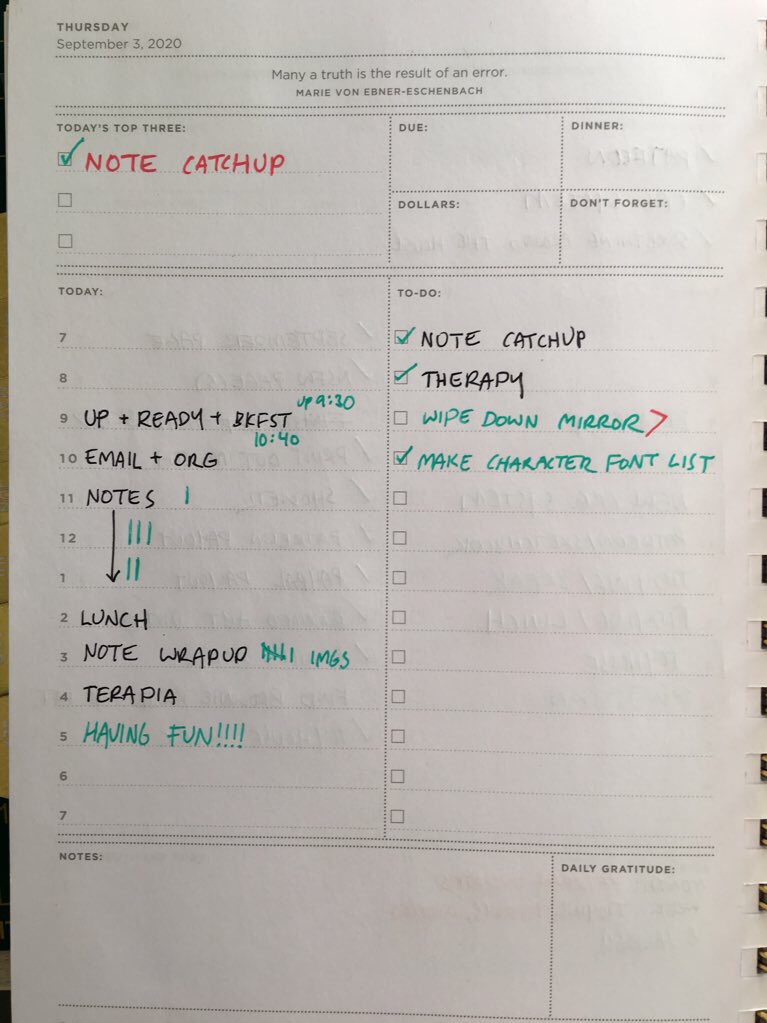 THURSDAY
September 3, 2020
Many a truth is the result of an error.
MARIE VON EBNER-ESCHENBACH
TODAY'S TOP THREE:
NOTE CATCHUP
DUE:
DINNER:
DOLLARS:
DON'T FORGET:
TODAY:
7
8
up 9:30
9 UP + READY + BKFST
10:40
10 EMAIL + ORG
11 NOTES I
12 III
1 II
2 LUNCH
3 NOTE WRAPUP IIIII IMGS
4 TERAPIA
5 HAVING FUN!!!!
6
7
TO-DO:
NOTE CATCHUP
THERAPY
WIPE DOWN MIRROR >
MAKE CHARACTER FONT LIST
NOTES:
DAILY GRATITUDE: